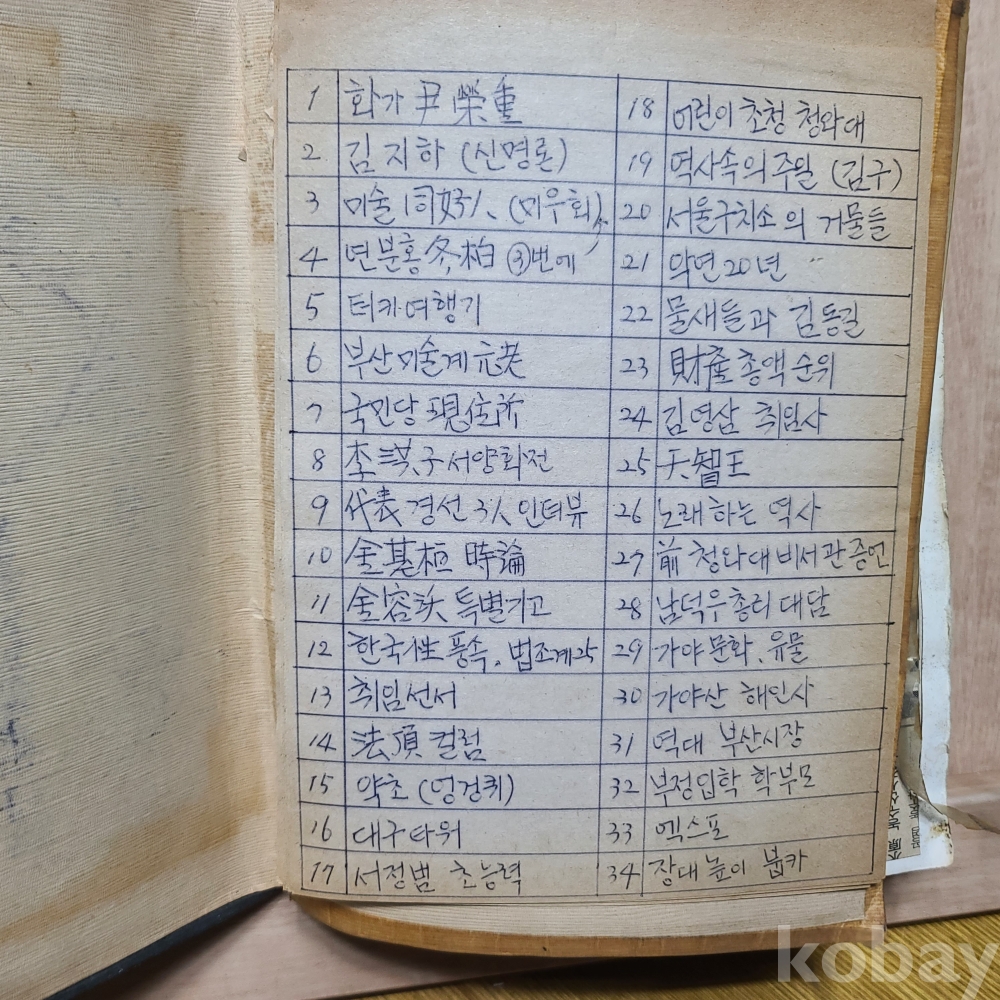 1 화가 尹榮重
2 김지하 (신명론)
3 미술同好人、(미우회)
4 연분홍 冬柏 ③번에
5 터키여행기
6 부산미술계 元老
7 국민당 現住所
8 李英子 서양화전
9 代表 경선 3人 인터뷰
10 金基桓 時論
11 金容沃 특별기고
12 한국性풍속. 법조계25
13 취임선서
14 法頂 컬럼
15 약초 (엉겅퀴)
16 대구타워
17 서정범 초능력
18 어린이 초청 청와대
19 역사속의 주일 (김구)
20 서울구치소의 거물들
21 악연 20년
22 물새들과 김동길
23 財産 총액 순위
24 김영삼 취임사
25 天智王
26 노래하는 역사
27 前 청와대 비서관 증언
28 남덕우총리 대담
29 가야문화、유물
30 가야산 해인사
31 역대 부산시장
32 부정입학 학부모
33 엑스포
34 장대높이 붑카
kobay